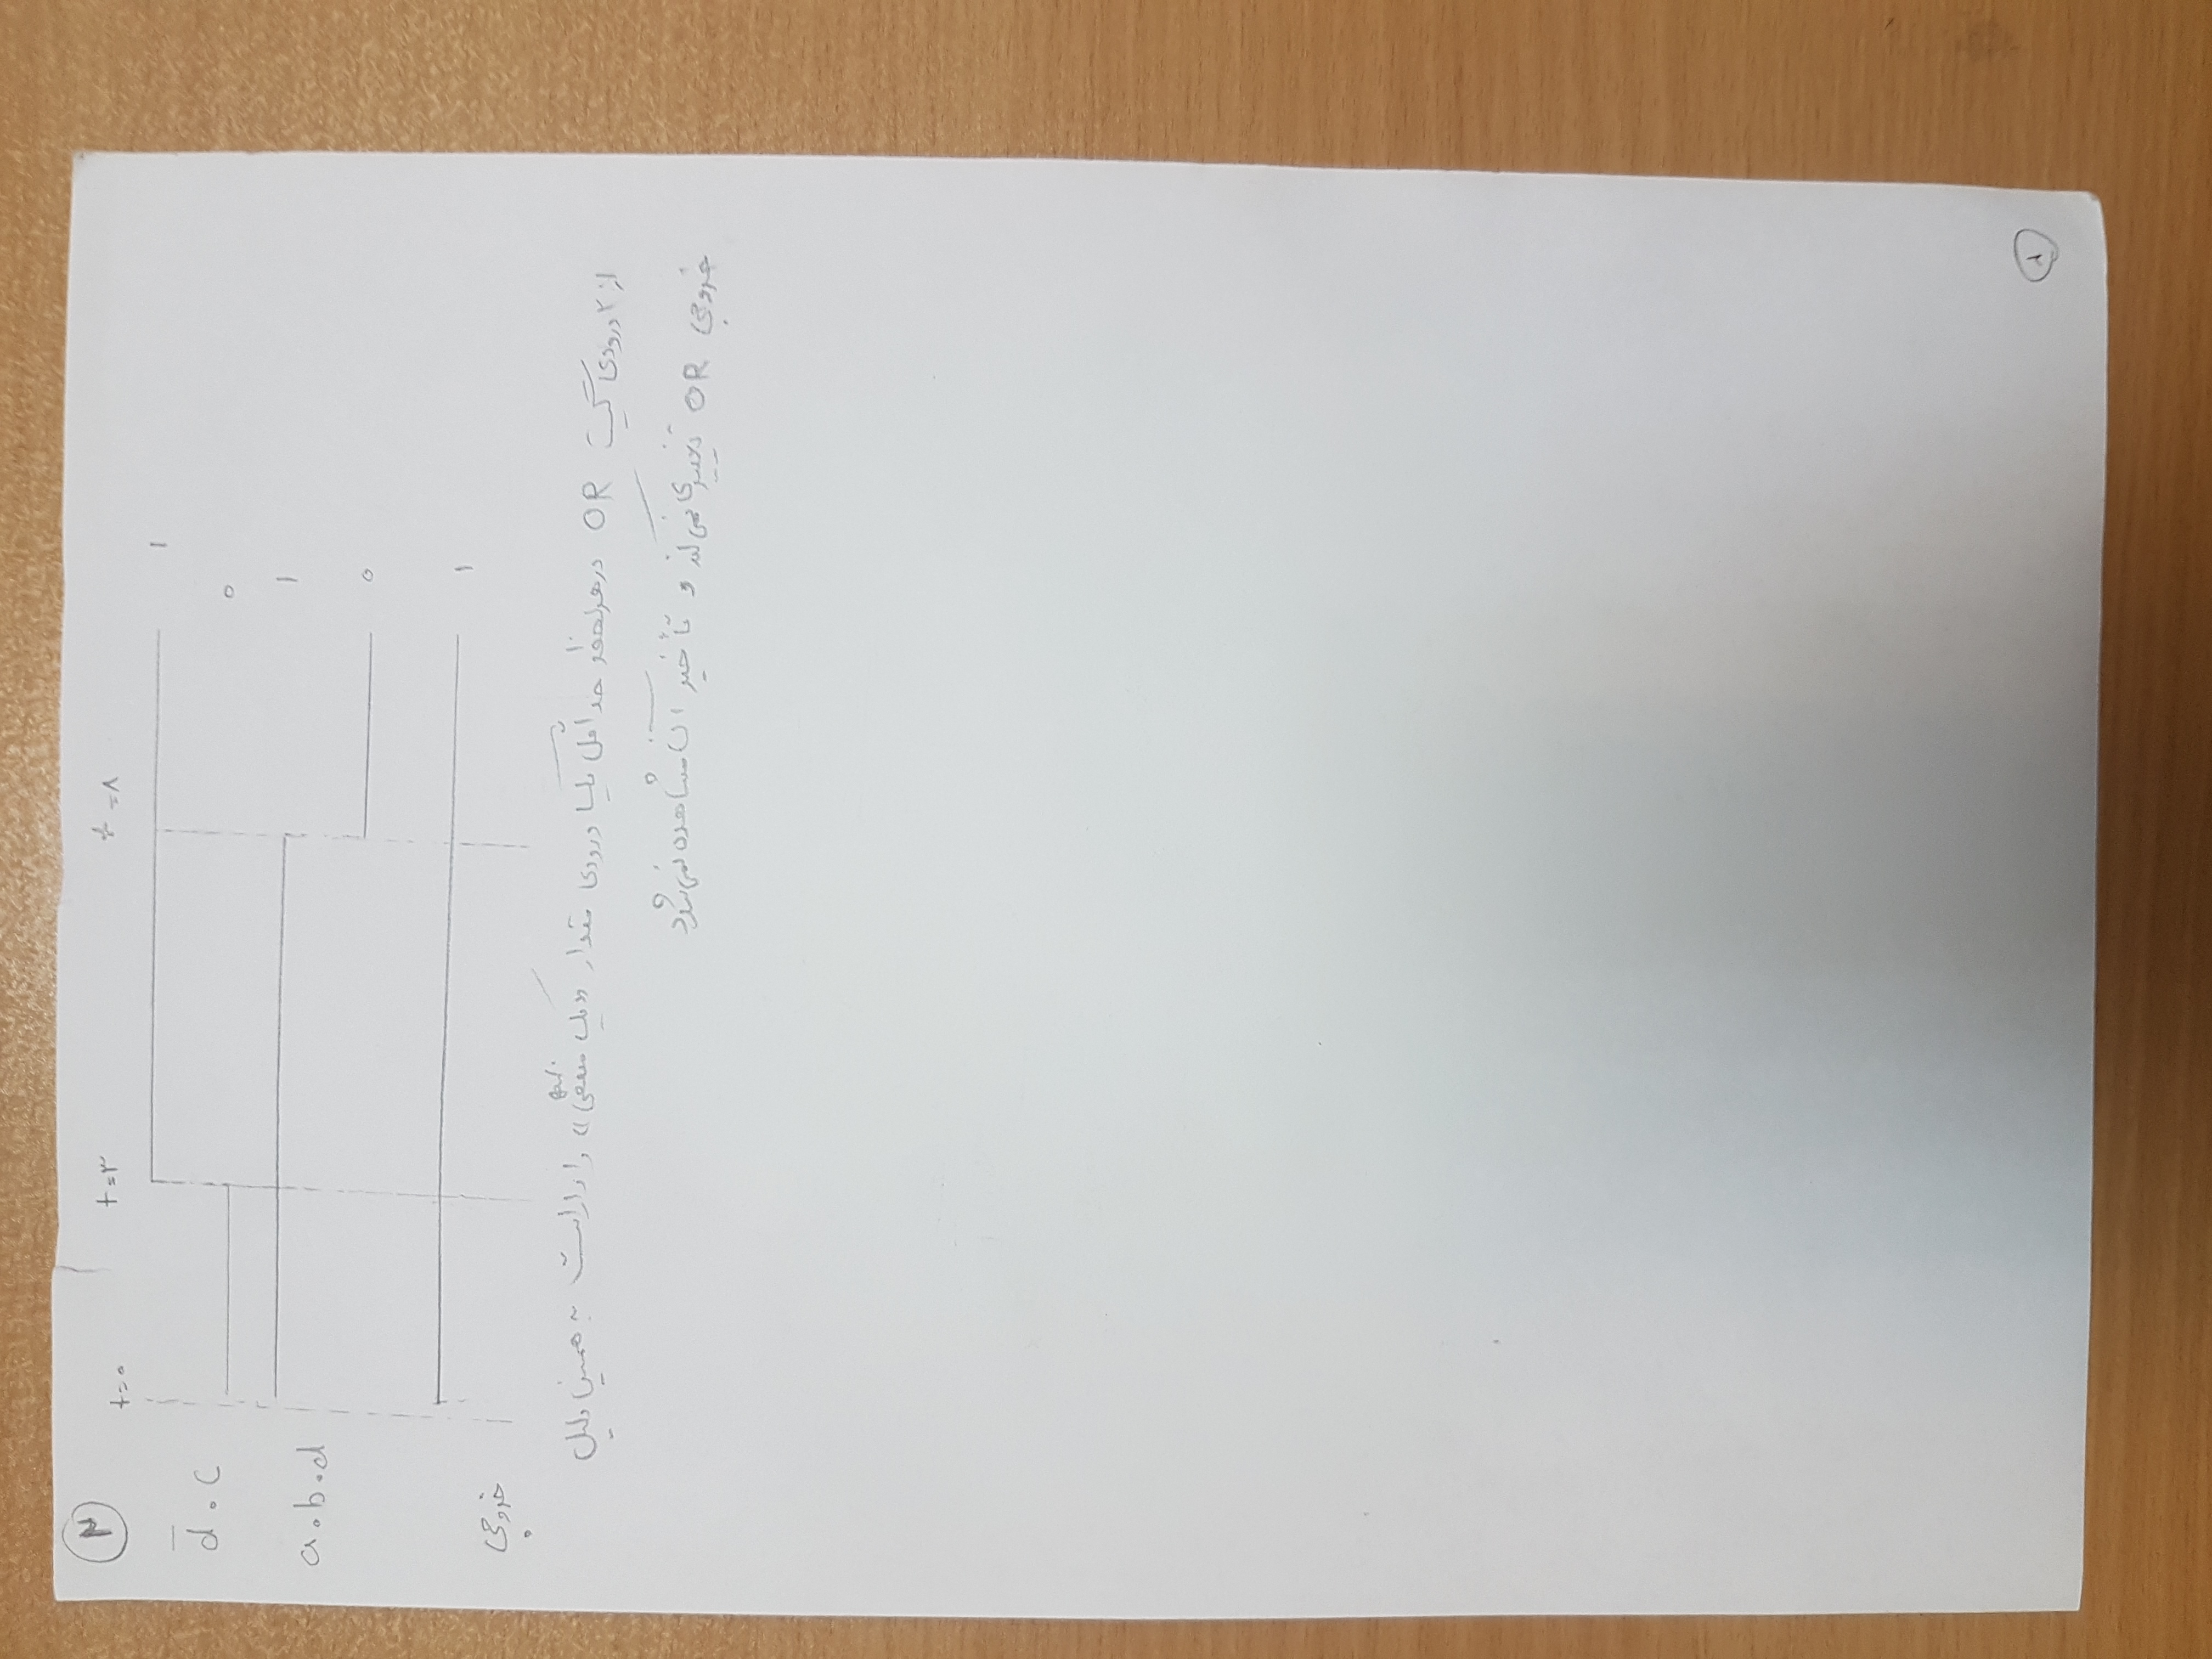 ۳
t=۰ t=۳ t=۸
d̅.c
1
0
a.b.d
1
0
خروجی
1
از ۲ ورودی گیت OR در هر لحظه حداقل یکی ورودی مقدار «یک منطقی» را داراست به همین دلیل
خروجی OR تغییری نمی کند و تأخیر آن مشاهده نمی شود